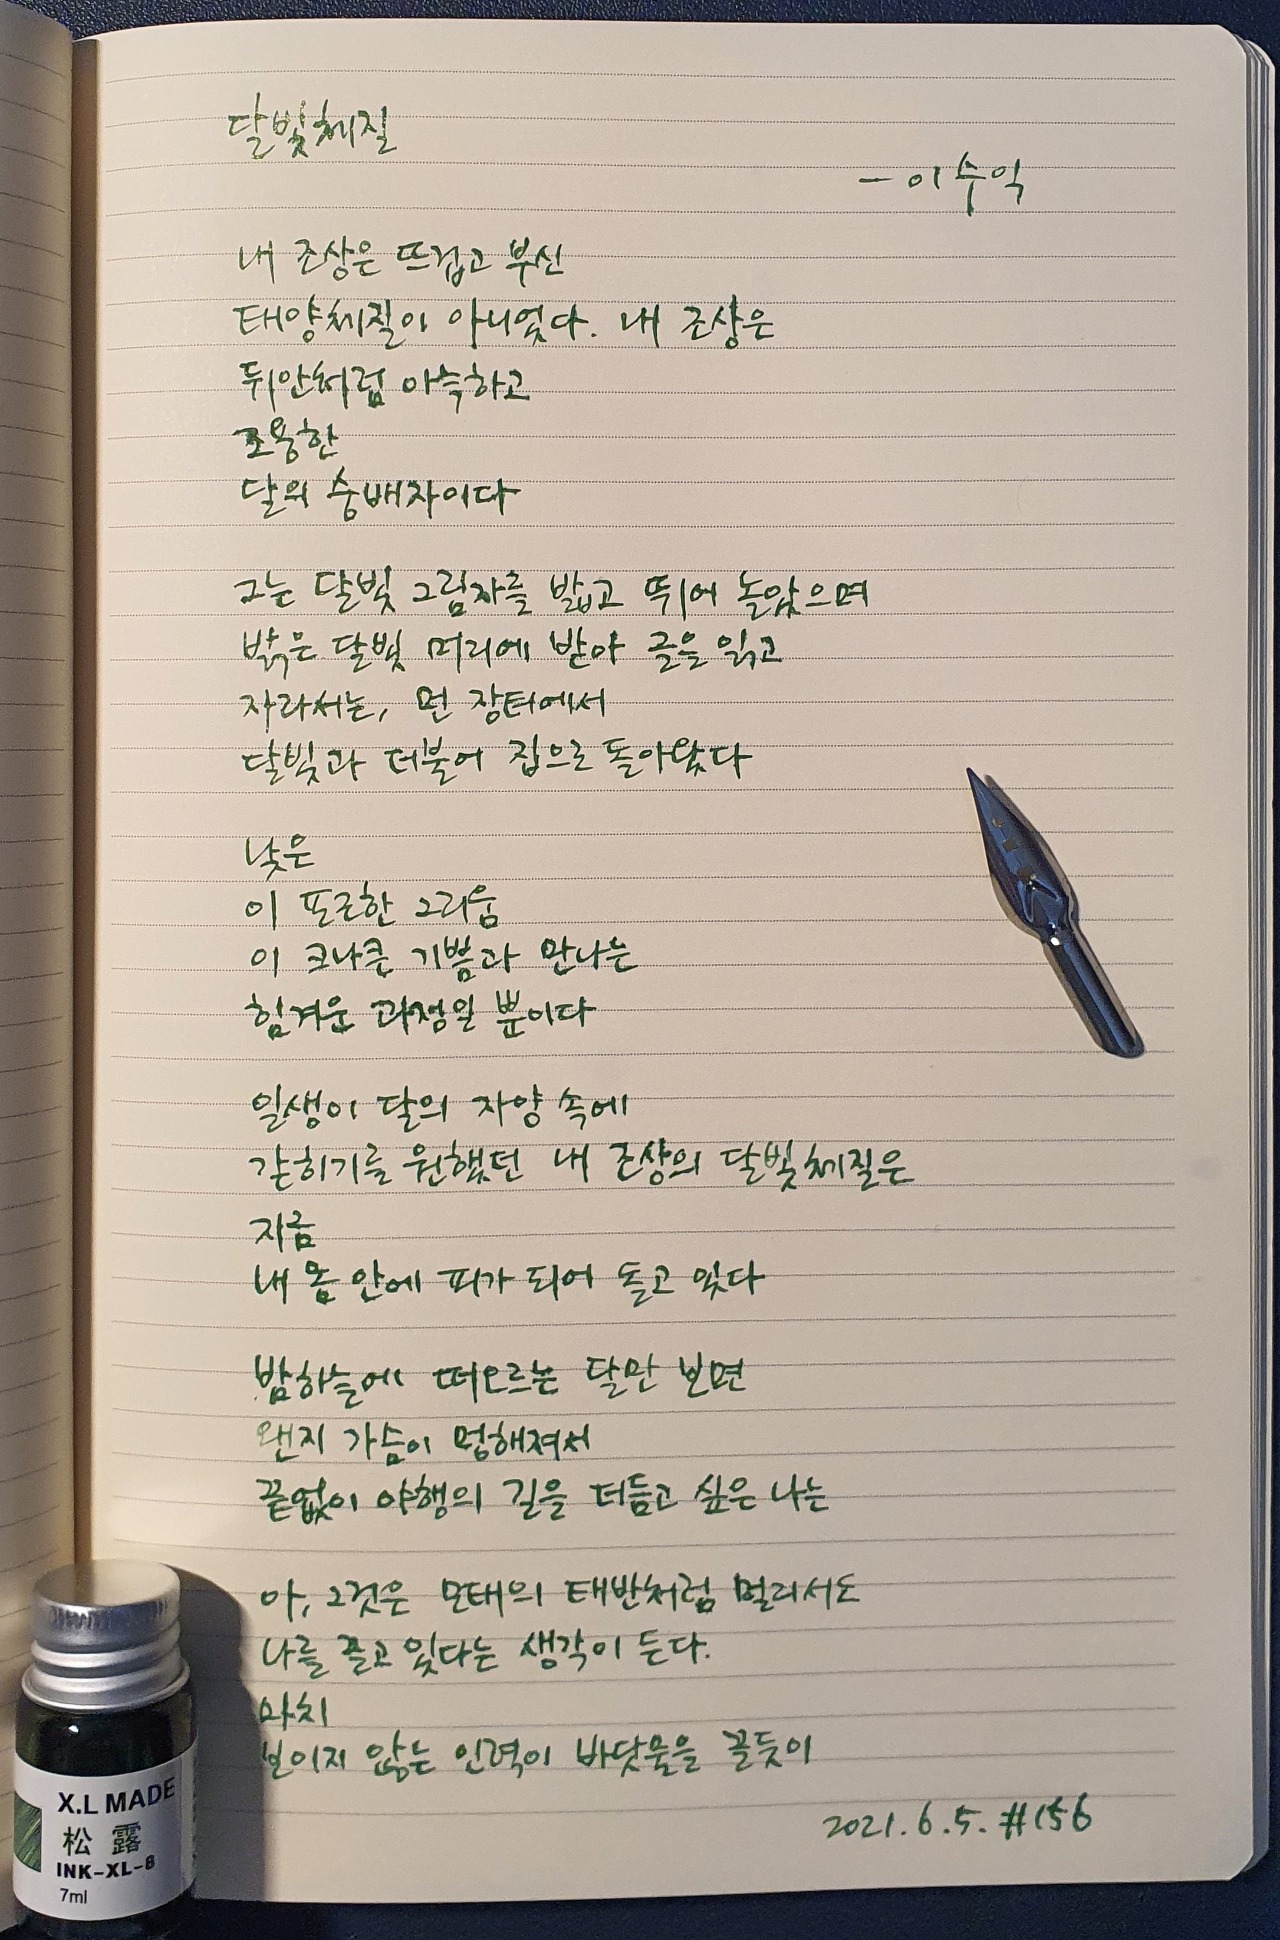 달빛체질
- 이수익
내 조상은 뜨겁고 부신
태양체질이 아니었다. 내 조상은
뒤안처럼 아늑하고
조용한
달의 숭배자이다
그는 달빛 그림자를 밟고 뛰어 놀았으며
밝은 달빛 머리에 받아 글을 읽고
자라서는, 먼 장터에서
달빛과 더불어 집으로 돌아왔다
낮은
이 포근한 그리움
이 크나큰 기쁨과 만나는
힘겨운 과정일 뿐이다
일생이 달의 자양 속에
갇히기를 원했던 내 조상의 달빛체질은
지금
내 몸 안에 피가 되어 돌고 있다
밤하늘에 떠오르는 달만 보면
왠지 가슴이 멍해져서
끝없이 야행의 길을 더듬고 싶은 나는
아, 그것은 모태의 태반처럼 멀리서도
나를 끌고 있다는 생각이 든다.
마치
보이지 않는 인력이 바닷물을 끌듯이
2021.6.5. #156
X.L MADE
松 露
INK-XL-8
7ml